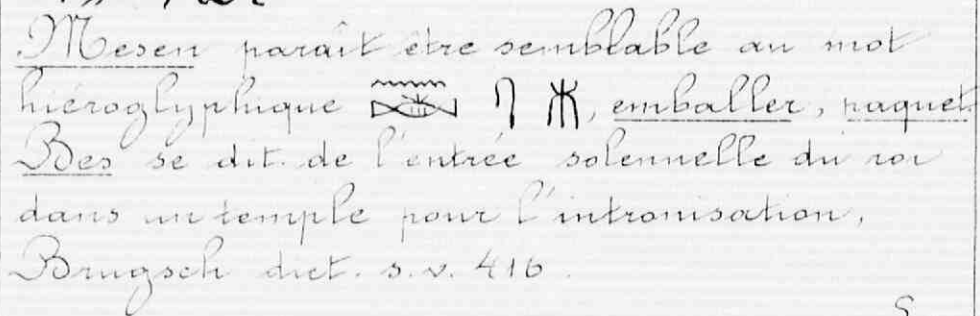 Mesen paraît être semblable au mot
hiéroglyphique , emballer, paquet
Bes se dit de l'entrée solennelle du roi
dans un temple pour l'intronisation,
Brugsch dict. s.v. 416.